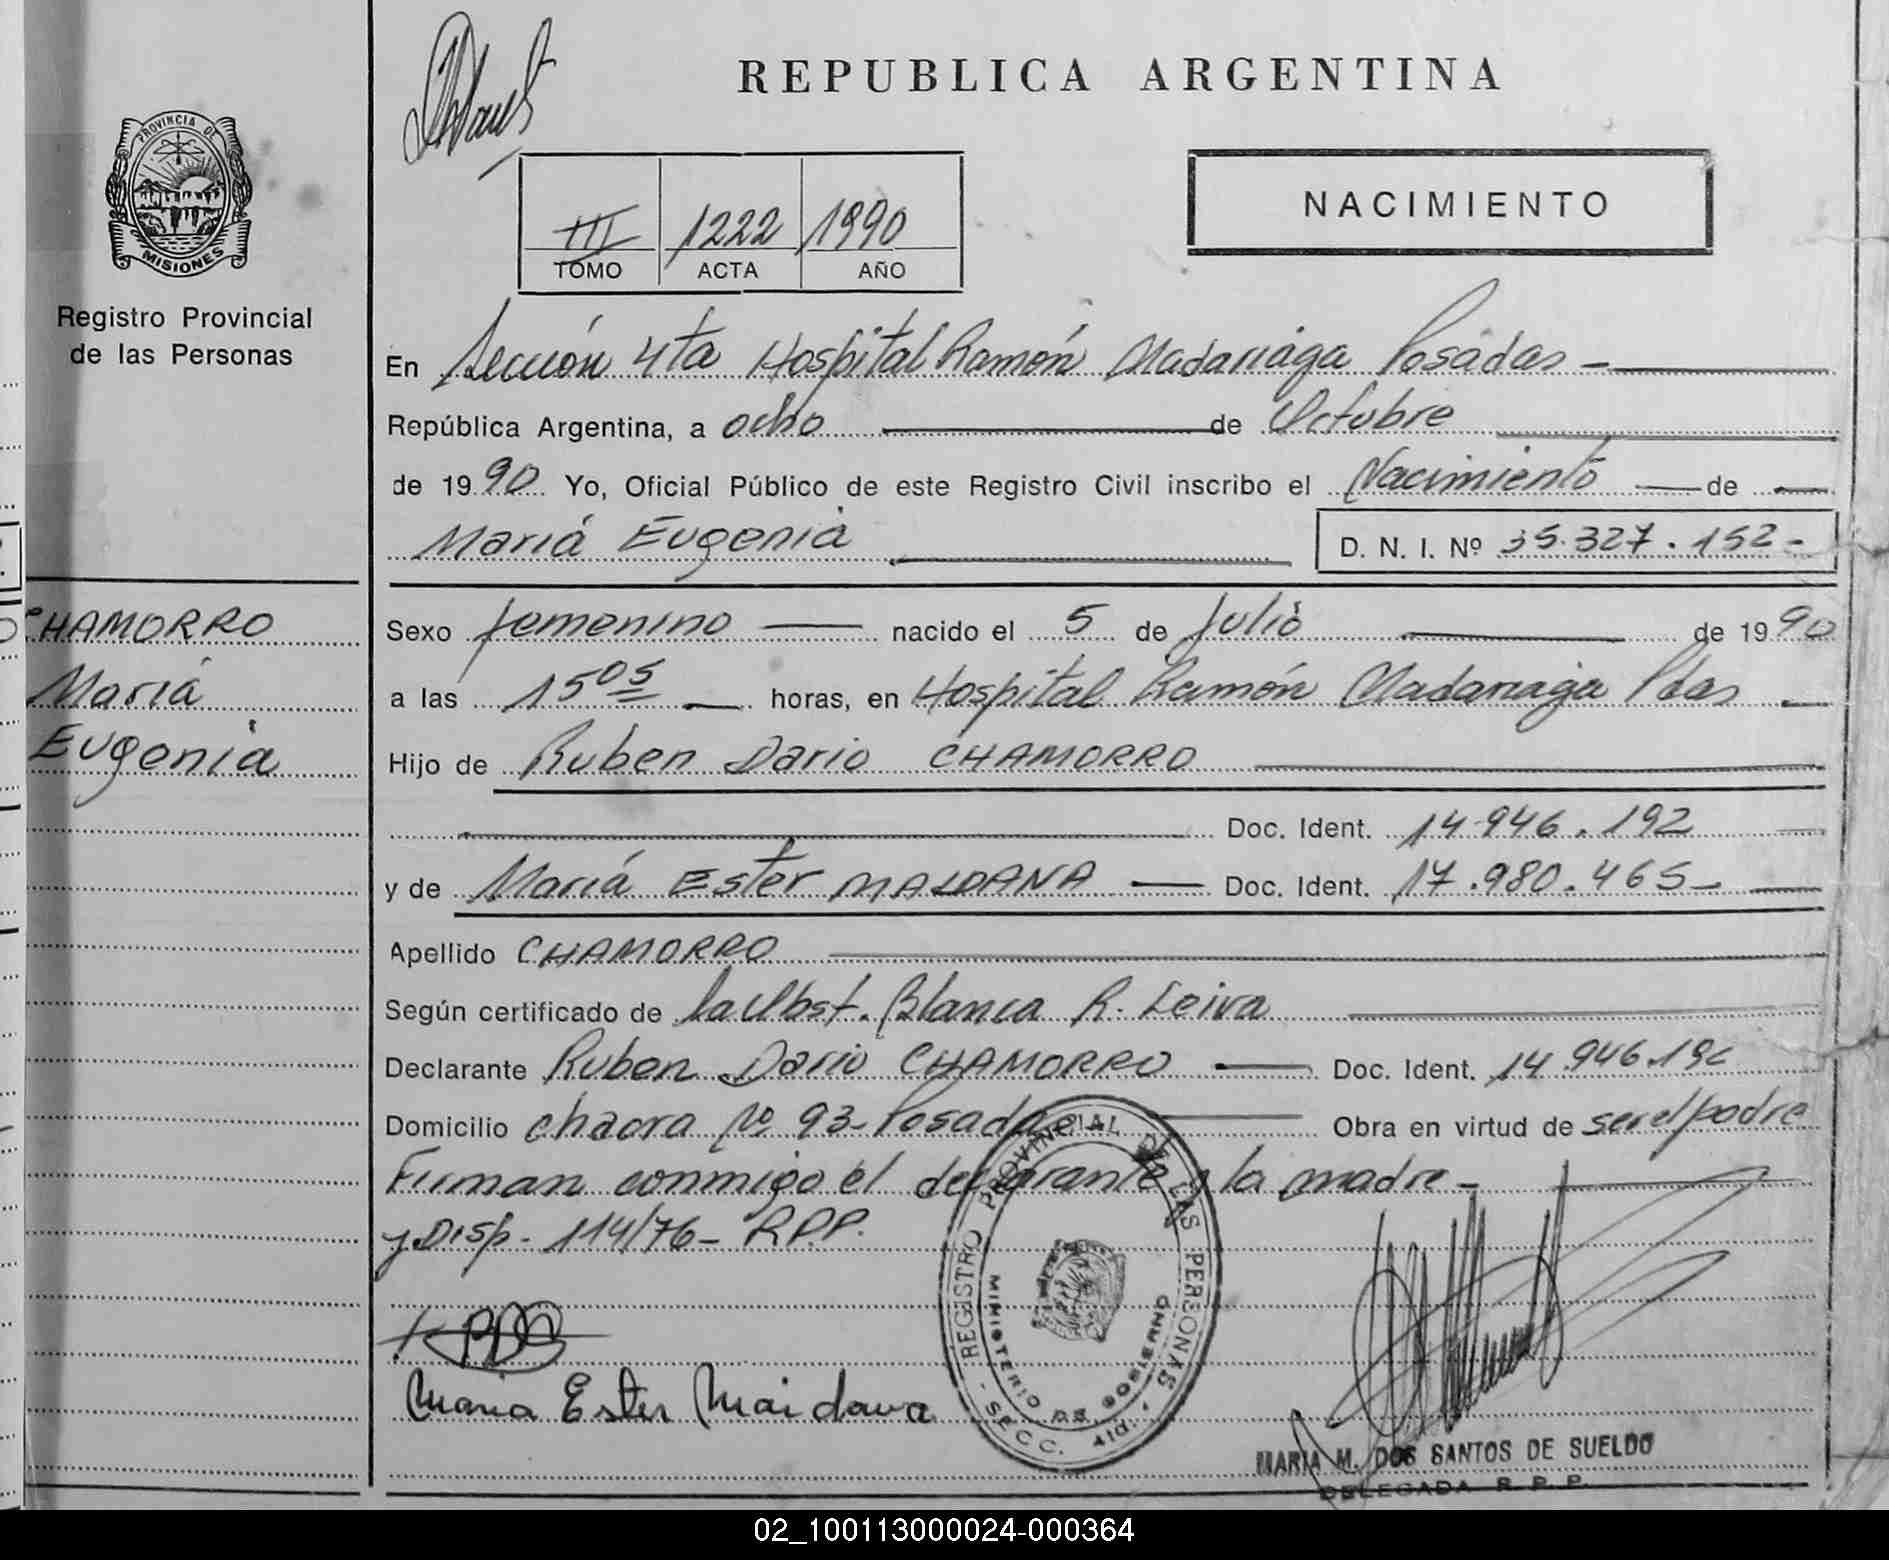 REPUBLICA ARGENTINA
PROVINCIA DE
MISIONES
Registro Provincial
de las Personas
III 1222 1990
TOMO ACTA AÑO
NACIMIENTO
En Sección 4ta Hospital Ramón Madariaga Posadas -
República Argentina, a ocho de Octubre
de 1990 Yo, Oficial Público de este Registro Civil inscribo el Nacimiento de
Mariá Eugenia D. N. I. Nº 35.327.152-
CHAMORRO
Mariá
Eugenia
Sexo femenino nacido el 5 de Julio de 1990
a las 15 05 horas, en Hospital Ramón Madariaga Pdas
Hijo de Ruben Dario CHAMORRO
Doc. Ident. 14.946.192
y de Mariá Ester MAIDANA Doc. Ident. 17.980.465-
Apellido CHAMORRO
Según certificado de la Obst. Blanca R. Leiva
Declarante Ruben Dario CHAMORRO Doc. Ident. 14.946.192
Domicilio chacra Nº 93-Posadas Obra en virtud de ser el padre
Firman conmigo el declarante y la madre -
y Disp. 114/76- R.P.P.
Maria Ester Maidana
REGISTRO PROVINCIAL DE LAS PERSONAS
MINISTERIO DE GOBIERNO
- SECC. 4ta. -
MARIA M. DOS SANTOS DE SUELDO
DELEGADA R. P. P.
02_100113000024-000364